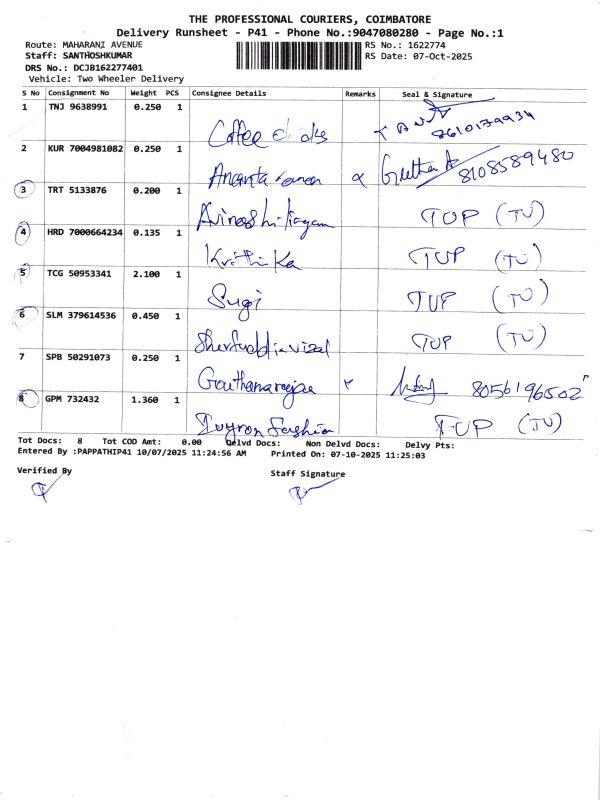 THE PROFESSIONAL COURIERS, COIMBATORE
Delivery Runsheet - P41 - Phone No.:9047080280 - Page No.:1
Route: MAHARANI AVENUE RS No.: 1622774
Staff: SANTHOSHKUMAR RS Date: 07-Oct-2025
DRS No.: DCJB162277401
Vehicle: Two Wheeler Delivery
S No Consignment No Weight PCS Consignee Details Remarks Seal & Signature
1 TNJ 9638991 0.250 1 Coffee 8610139934
2 KUR 7004981082 0.250 1 Ananta raman Geetha 8108589480
3 TRT 5133876 0.200 1 Avinashilingam TUP (TU)
4 HRD 7000664234 0.135 1 Krithika TUP (TU)
5 TCG 50953341 2.100 1 Sugi TUP (TU)
6 SLM 379614536 0.450 1 TUP (TU)
7 SPB 50291073 0.250 1 8056196502
8 GPM 732432 1.360 1 Ivyron Fashion TUP (TU)
Tot Docs: 8 Tot COD Amt: 0.00 Delvd Docs: Non Delvd Docs: Delvy Pts:
Entered By :PAPPATHIP41 10/07/2025 11:24:56 AM Printed On: 07-10-2025 11:25:03
Verified By Staff Signature